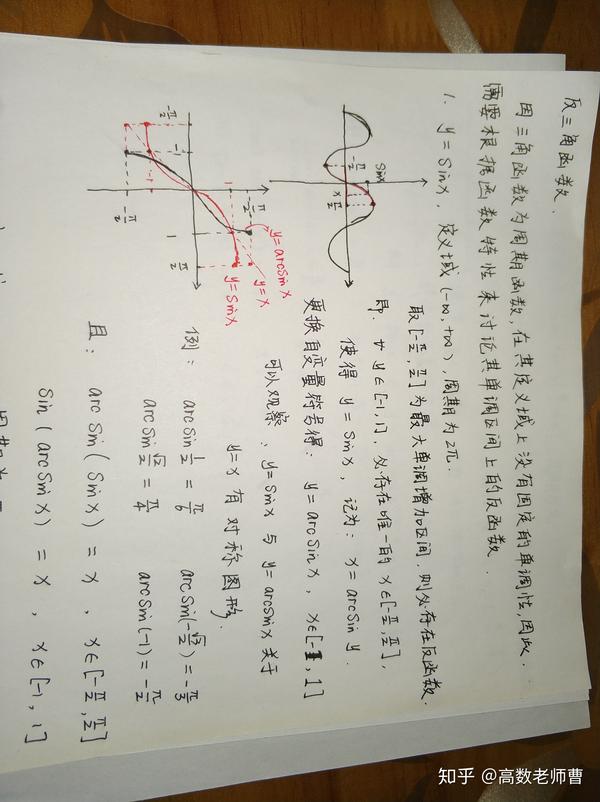 反三角函数.
因三角函数为周期函数,在其定义域上没有固定的单调性,因此.
需要根据函数特性来讨论其单调区间上的反函数.
1. y=Sinx, 定义域(-∞,+∞),周期为2π.
取[-π/2, π/2]为最大单调增加区间,则必存在反函数.
即. ∀ y∈[-1,1], 必存在唯一的 x∈[-π/2, π/2],
使得 y=Sinx, 记为: x=arcsin y.
更换自变量符号得: y=arcSinx, x∈[-1, 1]
可以观察, y=sinx 与 y=arcsinx 关于
y=x 有对称图形.
例: arcSin 1/2 = π/6 arcSin(-√3/2) = -π/3
arcSin √2/2 = π/4 arcSin(-1) = -π/2
且: arcSin(Sinx) = x, x∈[-π/2, π/2]
Sin(arcSinx) = x, x∈[-1, 1]
Sinx
-π/2
π/2
x
y=arcSinx
y=x
y=Sinx
π/2
1
-1
-π/2
-π/2
-1
1
π/2
知乎 @高数老师曹